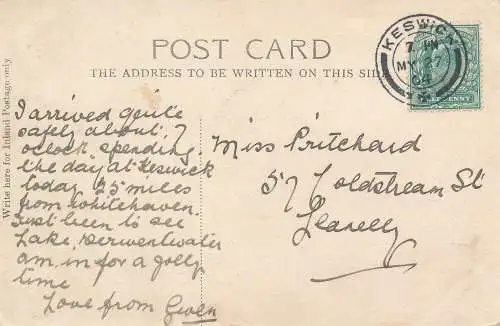 POST CARD
THE ADDRESS TO BE WRITTEN ON THIS SIDE
Write here for Inland Postage only
KESWICK
7 PM
MY 27
04
HALFPENNY
I arrived quite
safely about 7
oclock spending
the day at Keswick
today 25 miles
from Whitehaven.
Just been to see
Lake, Derwentwater
am in for a jolly
time
Love from Gwen
Miss Pritchard
57 Coldstream St
Llanelly